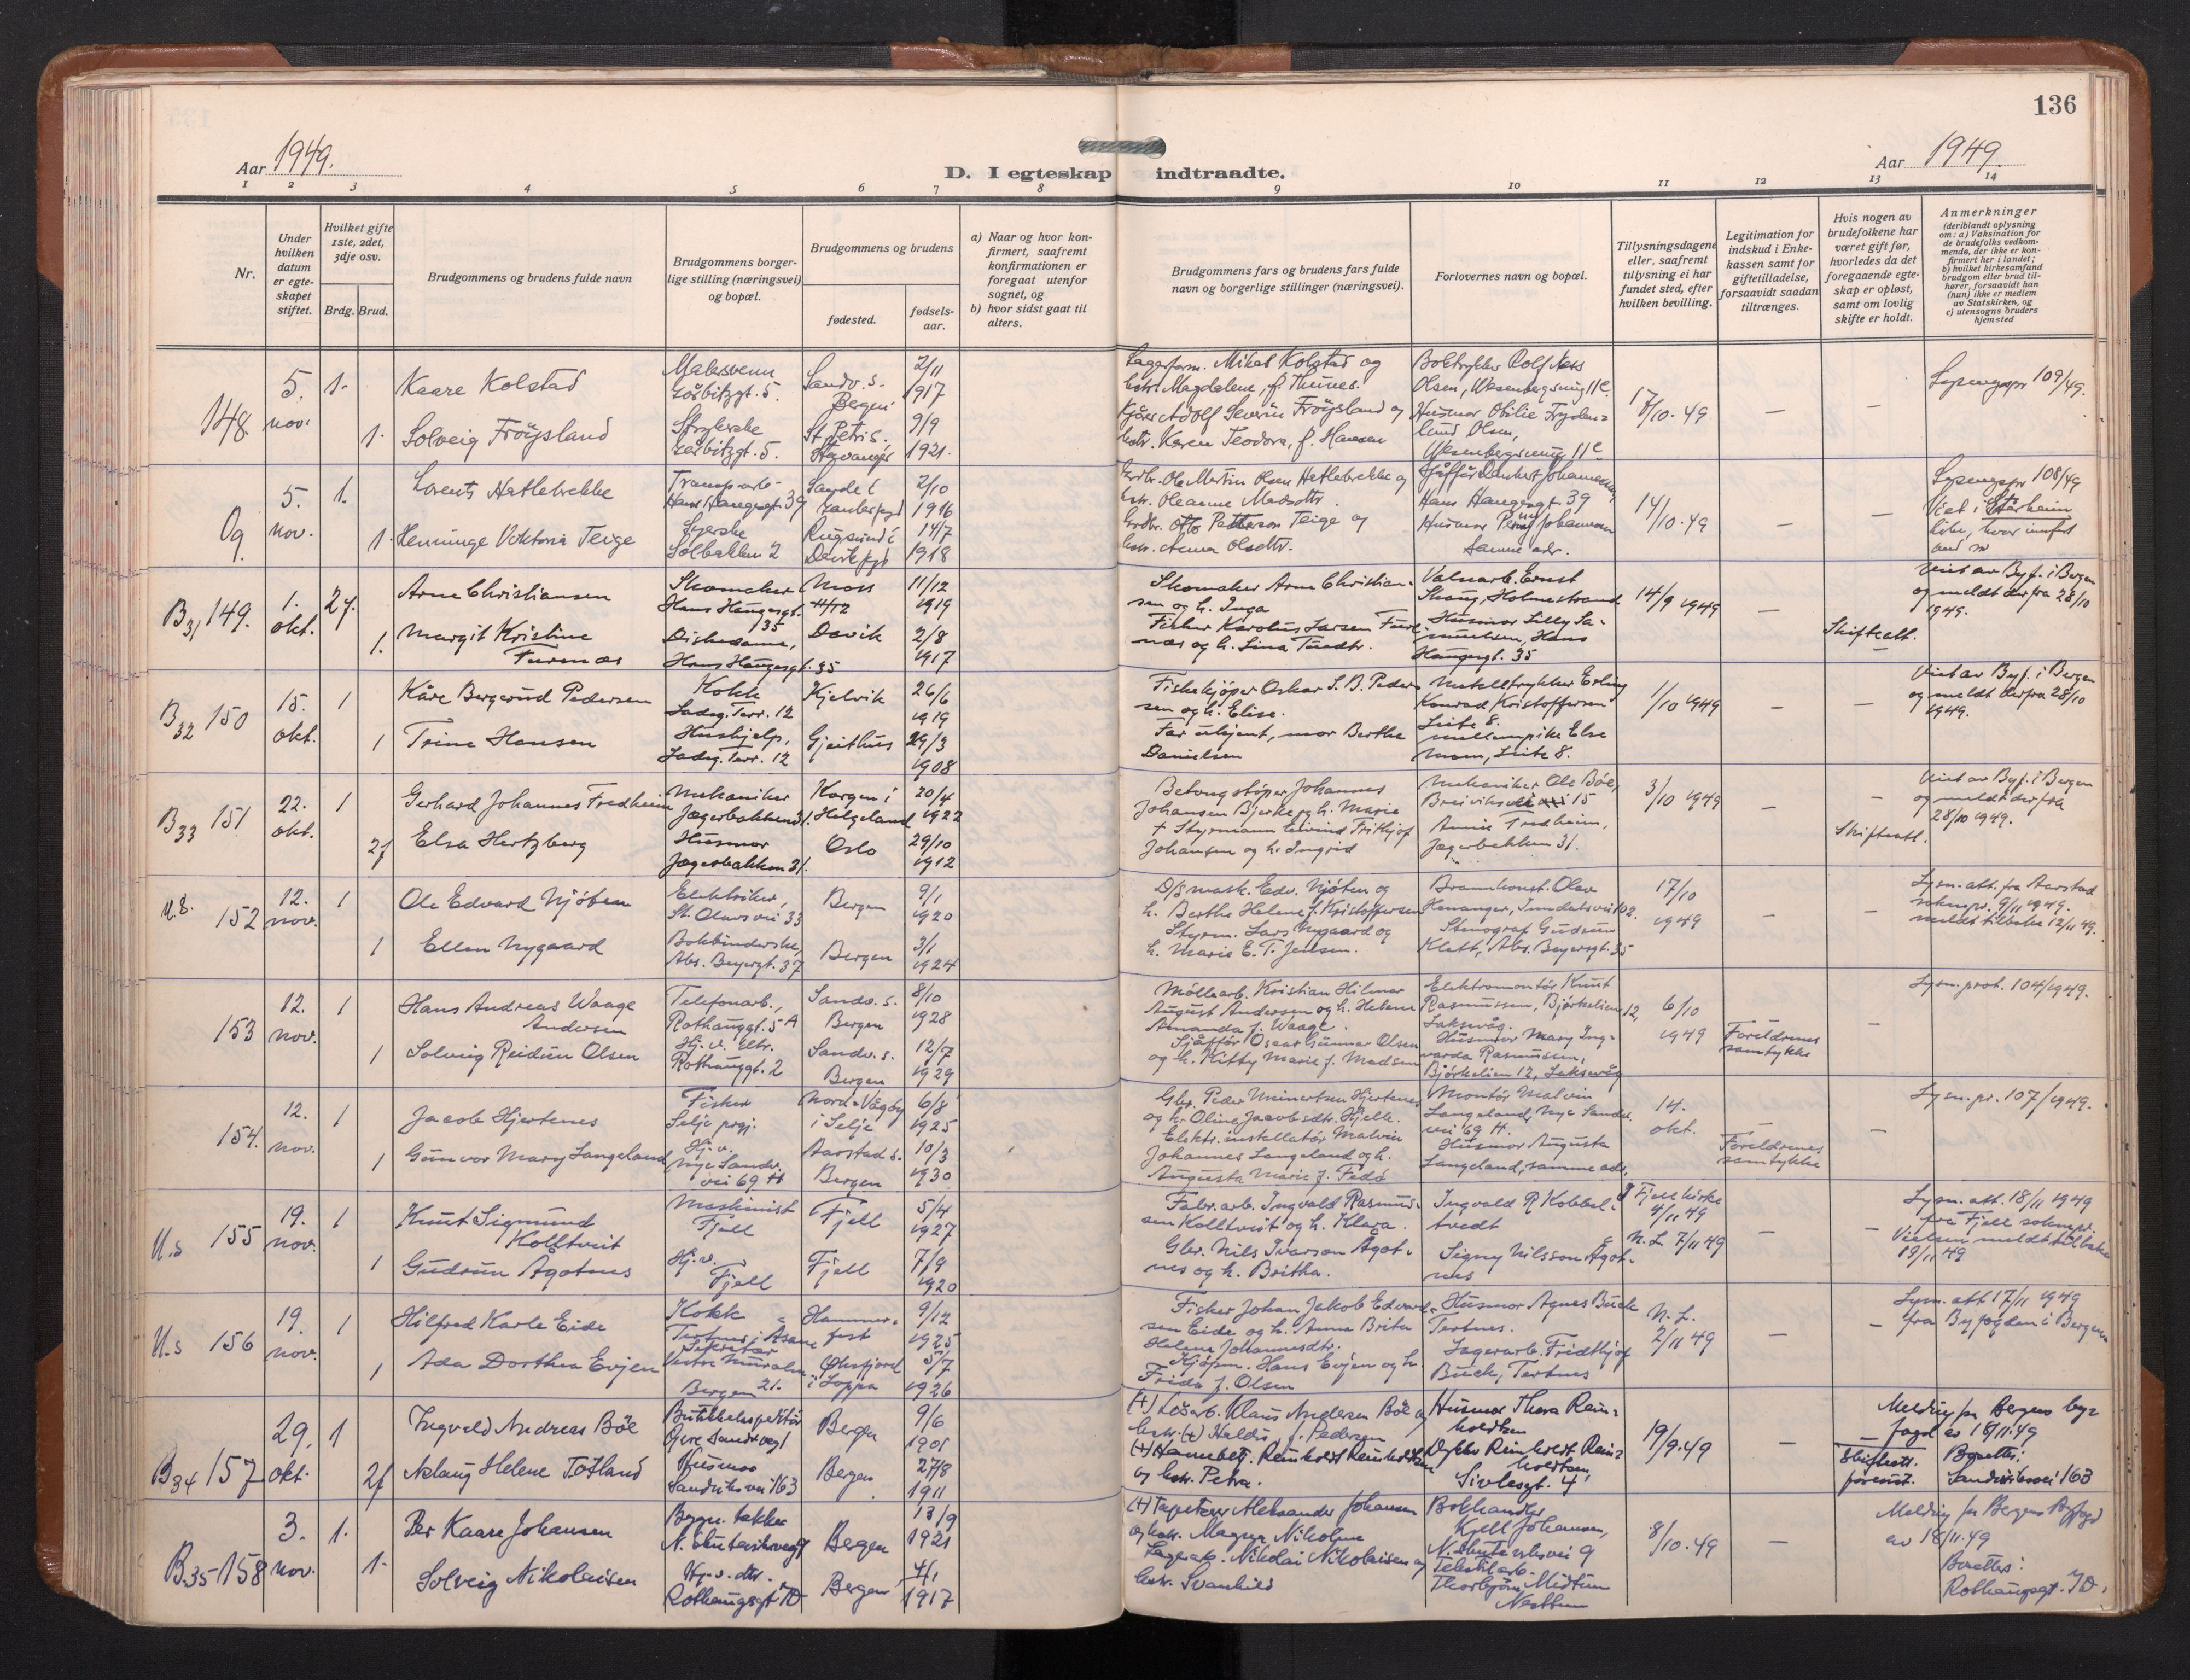 136
Aar 1949.
Aar 1949.
D. I egteskap indtraadte.
1 2 3 4 5 6 7 8 9 10 11 12 13 14
Nr.
Under hvilken datum er egteskapet stiftet.
Hvilket gifte 1ste, 2det, 3dje osv.
Brdg. Brud.
Brudgommens og brudens fulde navn
Brudgommens borgerlige stilling (næringsvei) og bopæl.
Brudgommens og brudens
fødested.
fødsels-aar.
a) Naar og hvor konfirmert, saafremt konfirmationen er foregaat utenfor sognet, og
b) hvor sidst gaat til alters.
Brudgommens fars og brudens fars fulde navn og borgerlige stillinger (næringsvei).
Forlovernes navn og bopæl.
Tillysningsdagene eller, saafremt tillysning ei har fundet sted, efter hvilken bevilling.
Legitimation for indskud i Enkekassen samt for giftetilladelse, forsaavidt saadan tiltrænges.
Hvis nogen av brudefolkene har været gift før, hvorledes da det foregaaende egteskap er opløst, samt om lovlig skifte er holdt.
Anmerkninger
(deriblandt oplysning om: a) Vaksination for de brudefolks vedkommende, der ikke er konfirmert her i landet;
b) hvilket kirkesamfund brudgom eller brud tilhører, forsaavidt han (hun) ikke er medlem av Statskirken, og
c) utensogns bruders hjemsted
148 5. nov. 1.
Kaare Kolstad
Malersvenn
Sandv. s. Bergen
2/11 1917
Lagerform. Mikal Kolstad og
hstr. Magdelene, f. Thunes.
Boktrykker Rolf Ness
Olsen, Wesenbergsmug 11c
7/10.49
Lysningspr 109/49.
1. Solveig Frøysland
Strykerske
St. Petri s. Stavanger
9/9 1921.
Kjører Adolf Severin Frøysland og
hstr. Karen Teodora, f. Hansen
Husmor Otilie Frydenlund Olsen,
Wesenbergsmug 11c
Og 5. nov. 1.
Lorentz Hetlebrekke
Hans Haugesgt 39
2/10 1916
Grdbr. Ole Martin Olsen Hetlebrekke og
hstr. Oleanne Madsdtr.
Hans Haugesgt. 39
14/10.49
Lysningspr 108/49
1. Henninge Viktoria Teige
Syerske
Solbakken 2
Rugsund i Davik pgd
14/7 1918
Grdbr. Otto Petterson Teige og
hstr. Anna Olsdtr.
Husmor Johannessen
Samme adr.
B31 149. 1. okt. 2g.
Arne Christiansen
Skomaker
Hans Haugesgt. 35
Moss
11/12 1919
Skomaker Arne Christiansen og h. Inga
Valsearb. Ernst
Skaug, Holmestrand
14/9 1949
Viet av Byf. i Bergen
og meldt derfra 28/10
1949.
1. Margit Kristine Furenæs
Diskedame,
Hans Haugesgt. 35
Davik
2/8 1917
Fisker Karolus Larsen Furenæs og h. Lina Tuedtr.
Husmor Lilly Samuelsen, Hans
Haugesgt. 35
Skifteatt.
B32 150 15. okt. 1
Kåre Bergerud Pedersen
Kokk
Ladeg. Terr. 12
Kjelvik
26/6 1919
Fiskekjøper Oskar S. B. Pedersen og h. Elise.
Metalltrykker Erling
Konrad Kristoffersen
Leite 8.
1/10 1949
Viet av Byf. i Bergen
og meldt derfra 28/10
1949.
1 Trine Hansen
Hushjelp,
Ladeg. Terr. 12
Gjeithus
29/3 1908
Far ukjent, mor Berthe
Danielsen
Else
Moen, Leite 8.
B33 151 22. okt. 1
Gerhard Johannes Fredheim
Mekaniker
Jægerbakken 31.
Korgen i Helgeland
20/4 1922
Betongstøper Johannes
Johansen Bjerke og h. Marie
Mekaniker Ole Bøe,
Breiviksvei 15
3/10 1949
Viet av Byf. i Bergen
og meldt derfra
28/10 1949.
2g Elsa Hertzberg
Husmor
Jægerbakken 31.
Oslo
29/10 1912
+ Styrmann Eivind Frithjof
Johansen og h. Ingrid
Annie Fredheim,
Jægerbakken 31.
Skifteatt.
U.s. 152 12. nov. 1
Ole Edvard Njøten
Elektriker,
St. Olavs vei 33
Bergen
9/1 1920
D/s mask. Edv. Njøten og
h. Berthe Helene f. Kristoffersen
Brannkonst. Olav
Henanger, Inndalsvei 102.
17/10 1949
Lysn. att. fra Aarstad
soknepr. 9/11 1949.
meldt tilbake 12/11 49.
1 Ellen Nygaard
Bokbinderske,
Abs. Beyersgt. 37
Bergen
3/1 1924
Styrm. Lars Nygaard og
h. Marie E. T. Jensen.
Stenograf Gudrun
Klett, Abs. Beyersgt. 35
153 12. nov. 1
Hans Andreas Waage Andersen
Telefonarb.,
Rothauggt. 5 A
Sandv. s. Bergen
8/10 1928
Møllearb. Kristian Hilmar
August Andersen og h. Helene
Amanda f. Waage.
Elektromontør Knut
Rasmussen, Bjørkelien 12,
Laksevåg.
6/10 1949
Foreldrenes samtykke
Lysn. prot. 104/1949.
1 Solveig Reidun Olsen
Hj. v. eltr.
Rothauggt. 2
Sandv. s. Bergen
12/7 1929
Sjåffør Oscar Gunnar Olsen
og h. Kitty Marie f. Madsen
Husmor Mary Ingvarda Rasmussen,
Bjørkelien 12, Laksevåg
154. 12. nov. 1
Jacob Hjertenes
Fisker
Selje prgj.
Nord-Vågsøy i Selje
6/8 1925
Gbr. Peder Meinertsen Hjertenes
og h. Oline Jacobsdtr. Hjelle.
Montør Malvin
Langeland, Nye Sandv.
vei 69 H.
14. okt.
Foreldrenes samtykke
Lysn. pr. 107/1949.
1 Gunvor Mary Langeland
Hj. v.
Nye Sandv. vei 69 H
Aarstad s. Bergen
10/3 1930
Elektr. installatør Malvin
Johannes Langeland og h.
Augusta Marie f. Fedø
Husmor Augusta
Langeland, samme adr.
U.s 155 19. nov. 1
Knut Sigmund Kolltveit
Maskinist
Fjell
Fjell
5/4 1927
Fabr. arb. Ingvald Rasmussen Kolltveit og h. Klara.
Ingvald R Kobbeltvedt
Fjell kirke
4/11 49
N. L. 7/11 49
Lysn. att. 18/11 1949
fra Fjell soknepr.
Vielsen meldt tilbake
19/11 49
1 Gudrun Ågotnes
Hj. v.
Fjell
Fjell
7/9 1920
Gbr. Nils Ivarson Ågotnes og h. Britha.
Signy Nilsson Ågotnes
U.s 156 19. nov. 1
Hilfred Karle Eide
Kokk
Tertnes i Åsane
Hammerfest
9/12 1925
Fisker Johan Jakob Edvardsen Eide og h. Anna Brita
Helene Johannesdtr.
Husmor Agnes Buck
Tertnes.
N. L.
2/11 49
Lysn. att 17/11 1949
fra Byfogden i Bergen
1 Ada Dorthea Evjen
Sekretær
Vestre Muralm. 21.
Bergen
Øksfjord i Loppa
5/7 1926
Kjøpm. Hans Evjen og h.
Frida f. Olsen
Lagerarb. Fridthjof
Buck, Tertnes
B34 157 29. okt. 1
Ingvald Andreas Bøe
Butikkekspeditør
Bergen
9/6 1901
(+) Løsarb. Klaus Andersen Bøe og
hstr. (+) Haldis, f. Pedersen
Husmor Thora Reinholdtsen
19/9.49
Melding fra Bergens byfogd av 18/11.49
2g Aslaug Helene Totland
Husmor
Sandviksvei 163
Bergen
27/8 1911
Reinholdt Reinholdtsen
og hstr. Petra.
Dykker Reinholdt Reinholdtsen,
Sivlesgt. 4
Skifteatt. forevist.
Bosettes:
Sandviksvei 163
B35 158 3. nov. 1.
Per Kaare Johansen
Bergen
13/9 1921
(+) Tapetserer Aleksander Johansen
og hstr. Magna Nikoline
Bokhandler
Kjell Johansen,
8/10.49
Melding fra Bergens Byfogd
av 18/11.49
1. Solveig Nikolaisen
Hj. v. dtr.
Rothaugsgt. 7D
Bergen
4/1 1917
Lagerarb. Nikolai Nikolaisen og
hstr. Svanhild
Tekstilarb.
Thorbjørn Midtun
Nesttun
Bosettes:
Rothaugsgt. 7D.